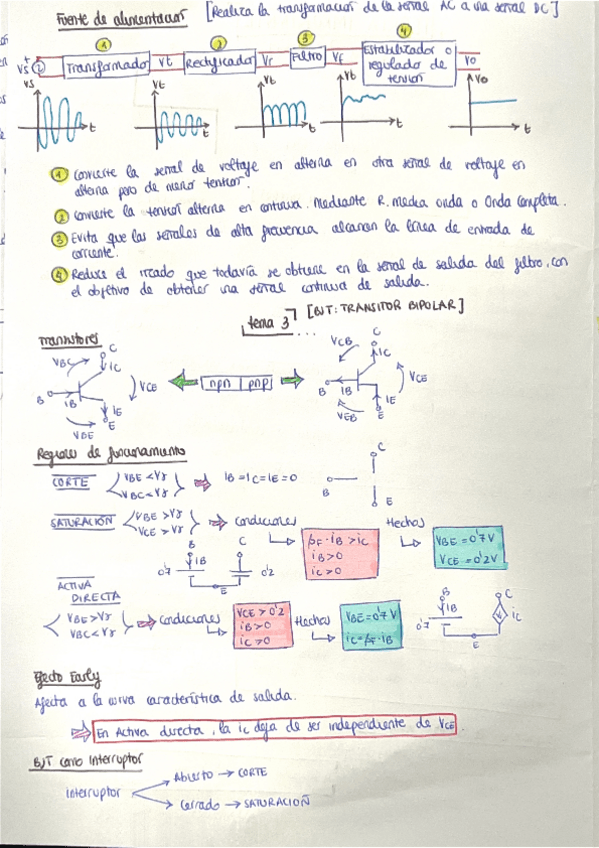 Fuente de alimentación [Realiza la transformación de la señal AC a una señal DC]
1 2 3 4
Vs Transformador Vt Rectificador Vr Filtro Vf Estabilizador o regulado de tensión Vo
Vs Vt Vt Vo
t t t t t
1 Convierte la señal de voltaje en alterna en otra señal de voltaje en
alterna pero de menor tensión.
2 convierte la tensión alterna en continua. Mediante R. media onda o Onda Completa.
3 Evita que las señales de alta frecuencia alcancen la línea de entrada de
corriente.
4 Reduce el rizado que todavía se obtiene en la señal de salida del filtro, con
el objetivo de obtener una señal continua de salida.
tema 3 [BJT: TRANSITOR BIPOLAR]
Transistores
C VBC iC VCE B iB iE E VBE
npn pnp
VCB C iC VCE B iB iE VEB E
Regiones de funcionamiento
CORTE VBE < Vγ VBC < Vγ iB = iC = iE = 0 B C E
SATURACIÓN VBE > Vγ VCE > Vγ Condiciones βF·iB > iC iB>0 iC>0 Hechos VBE = 0'7V VCE = 0'2V
B C iB 0'7 0'2 E
ACTIVA DIRECTA
VBE > Vγ VBC < Vγ Condiciones VCE > 0'2 iB>0 iC>0 Hechos VBE = 0'7 V iC = βF·iB
B iB 0'7 E C iC
Efecto Early
Afecta a la curva característica de salida.
En Activa directa, la ic deja de ser independiente de VCE.
BJT como interruptor
interruptor
Abierto → CORTE
Cerrado → SATURACIÓN